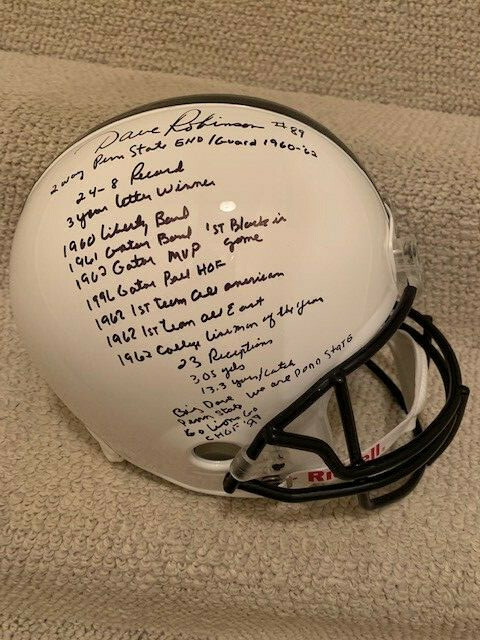 Dave Robinson #89
2 way Penn State END/Guard 1960-62
24-8 Record
3 year letter Winner
1960 Liberty Bowl
1961 Gator Bowl 1st Black in game
1962 Gator MVP
1996 Gator Bowl HOF
1962 1st Team all american
1962 1st team all East
1962 College lineman of the Year
23 Receptions
305 yds
13.3 yards/catch
Big Dave we are PENN STATE
Penn State
Go Lions Go
CHOF '97